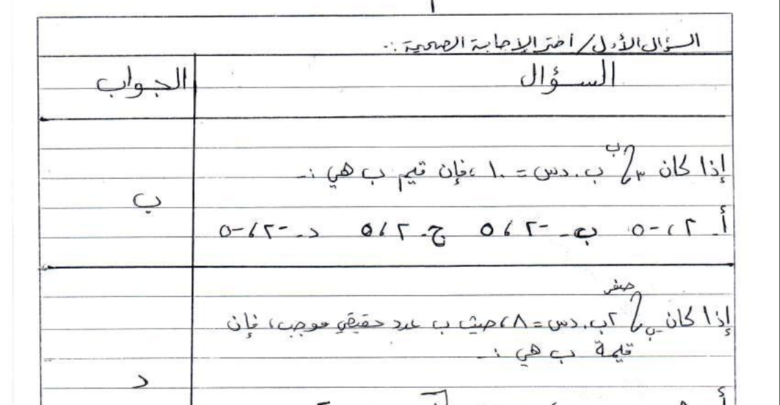 السؤال الأول/ أختر الإجابة الصحيحة :.
السؤال
الجواب
إذا كان ∫٣ب ب.دس = ١٠، فإن قيم ب هي :-
أ- ٢، -٥ ب- -٢، ٥ ج- ٢، ٥ د- -٢، -٥
ب
إذا كان ∫-بصفر ٢ب.دس = ٨، حيث ب عدد حقيقي موجب، فإن
قيمة ب هي :-
د
أ